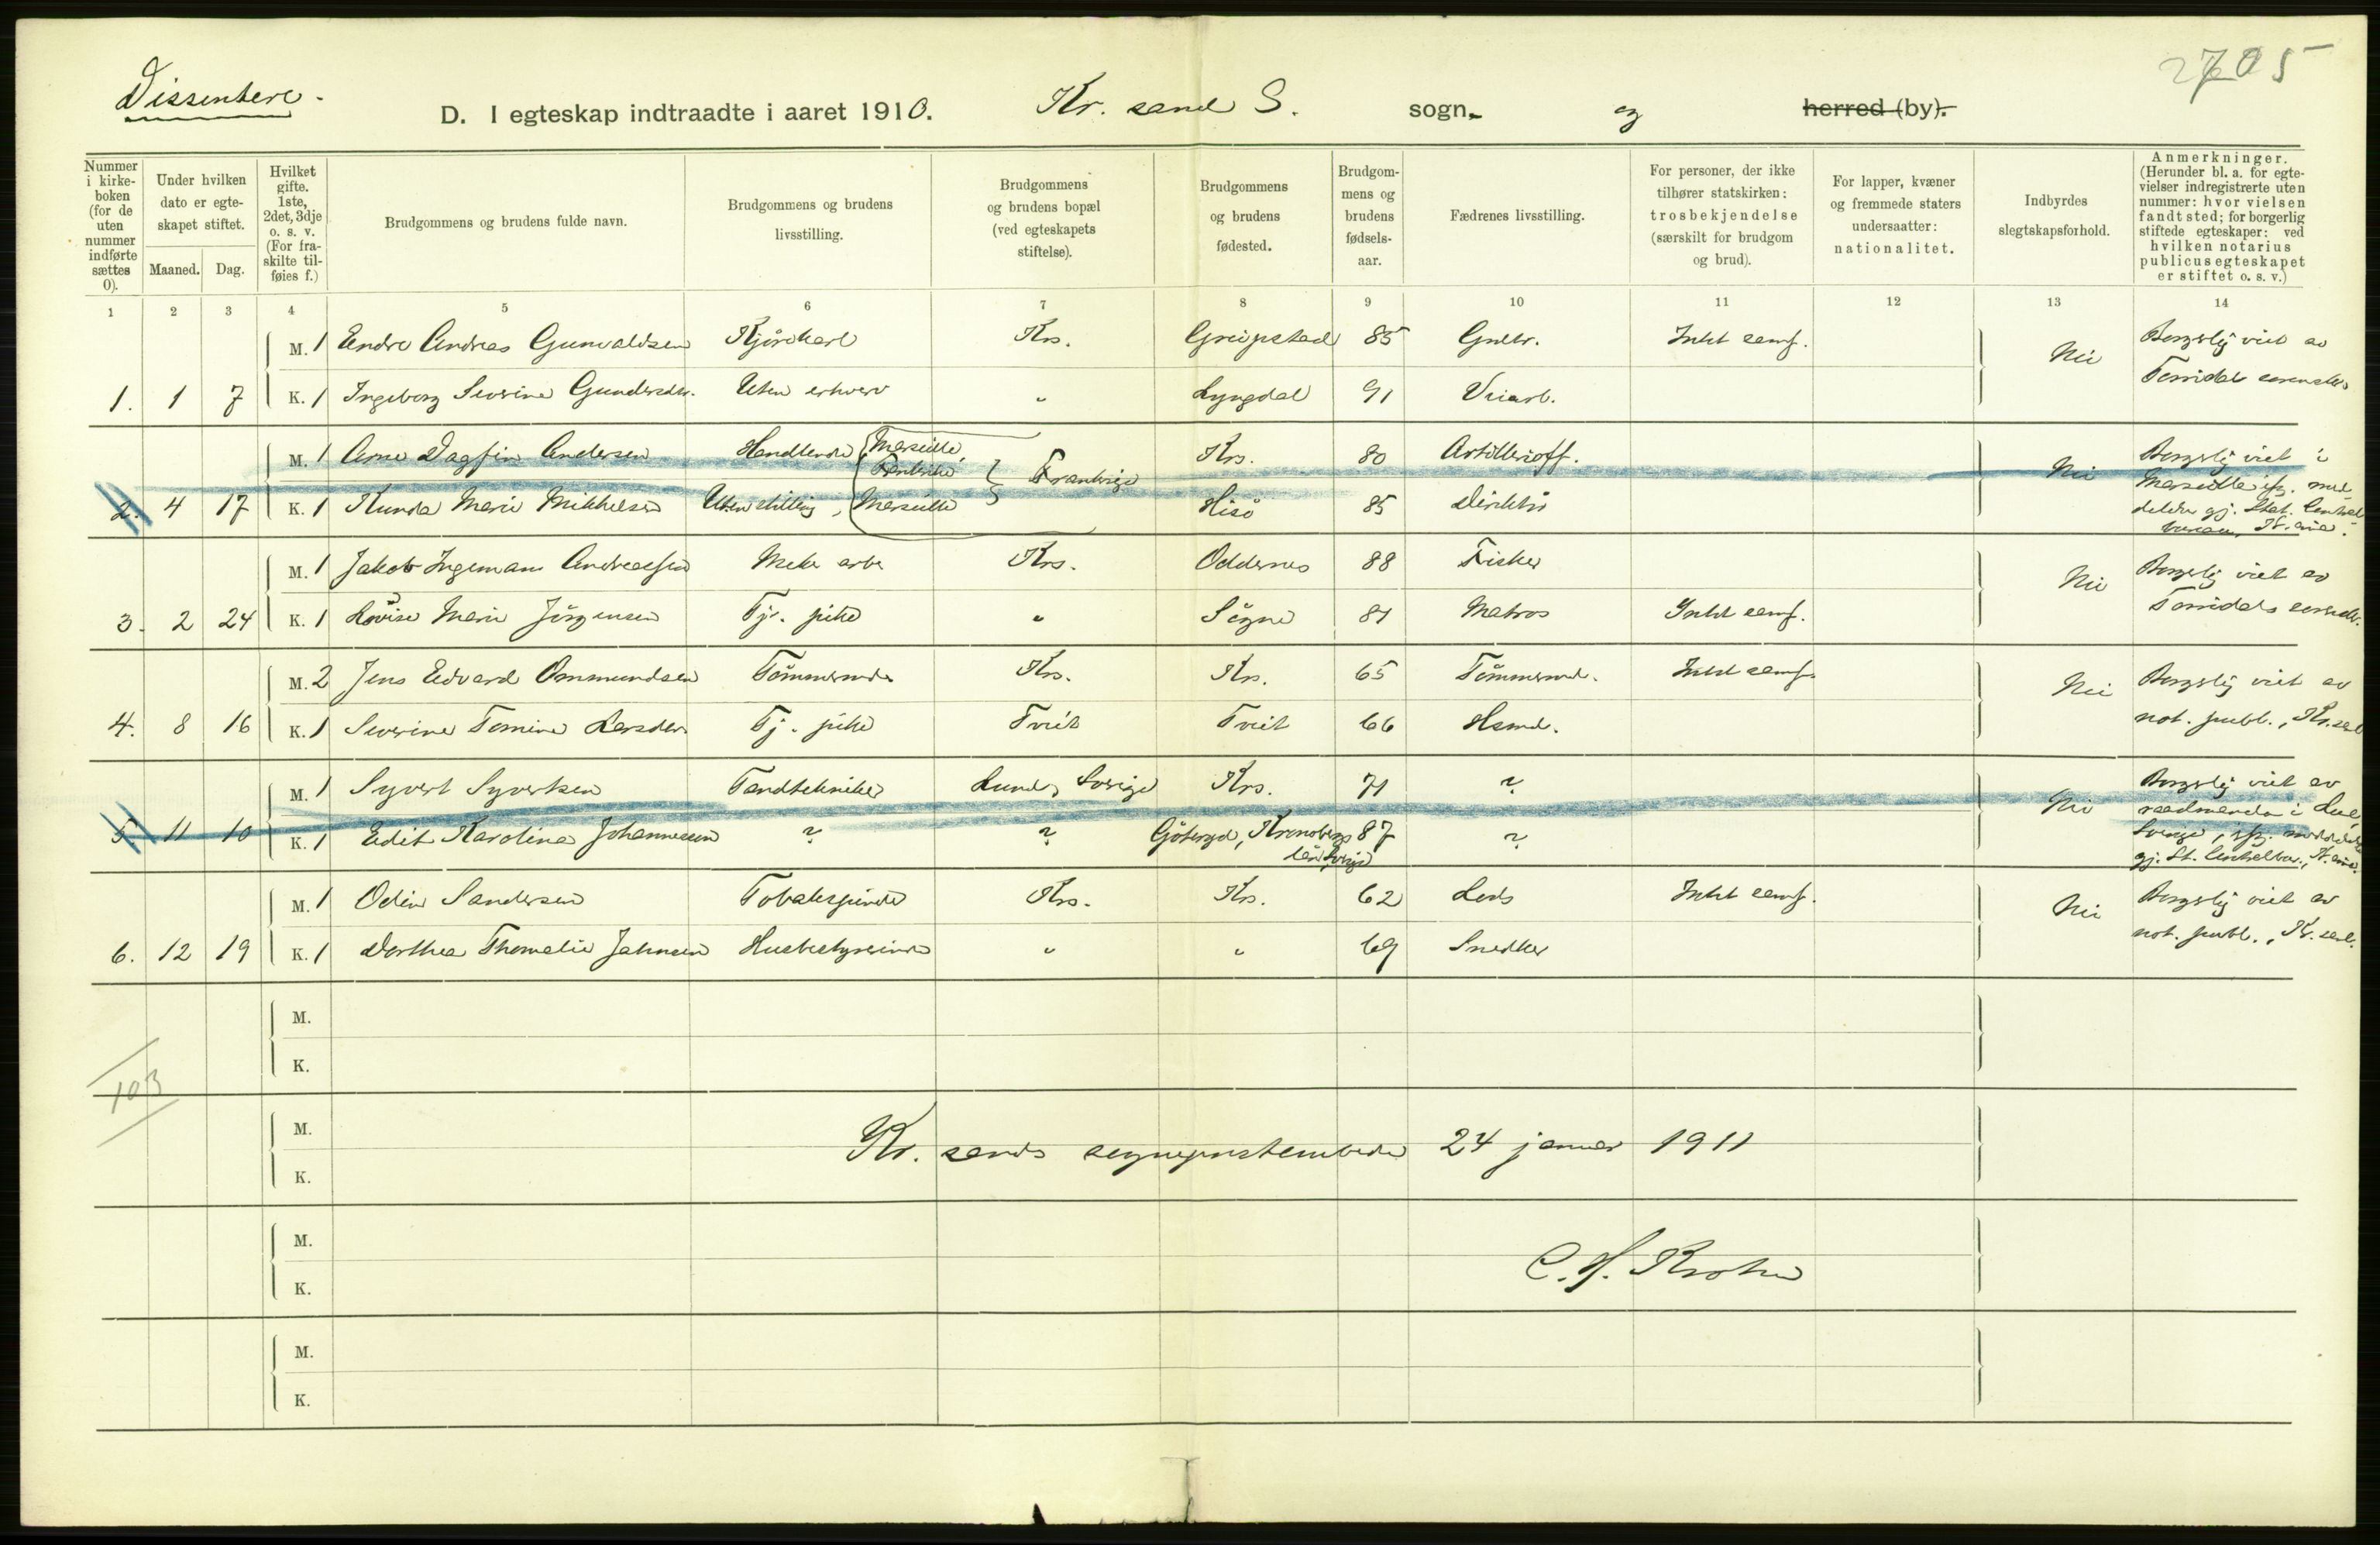 Dissentere.
2705
D. I egteskap indtraadte i aaret 1910. Kr. sand S. sogn. og herred (by).
Nummer i kirkeboken (for de uten nummer indførte sættes 0).
Under hvilken dato er egteskapet stiftet.
Maaned. Dag.
Hvilket gifte. 1ste, 2det, 3dje o. s. v. (For fraskilte tilføies f.)
Brudgommens og brudens fulde navn.
Brudgommens og brudens livsstilling.
Brudgommens og brudens bopæl (ved egteskapets stiftelse).
Brudgommens og brudens fødested.
Brudgommens og brudens fødselsaar.
Fædrenes livsstilling.
For personer, der ikke tilhører statskirken: trosbekjendelse (særskilt for brudgom og brud).
For lapper, kvæner og fremmede staters undersaatter: nationalitet.
Indbyrdes slegtskapsforhold.
Anmerkninger. (Herunder bl. a. for egtevielser indregistrerte uten nummer: hvor vielsen fandt sted; for borgerlig stiftede egteskaper: ved hvilken notarius publicus egteskapet er stiftet o. s. v.)
1 2 3 4 5 6 7 8 9 10 11 12 13 14
M. 1 Endre Andreas Gunvaldsen Kjørekarl Krs. Greipstad 85 Gaardbr. Intet samf. Nei Borgerlig viet av
1. 1 7 K. 1 Ingeborg Severine Gundersdtr. Uten erhverv " Lyngdal 91 Veiarb. Torridals sorenskr.
M. 1 Arne Dagfin Andersen Handlende Marseille, Frankrike Frankrige Krs. 80 Artillerioff. Nei Borgerlig viet i
2. 4 17 K. 1 Kunda Marie Mikkelsen Uten stilling, Marseille Hisö 85 Direktør Marseille ifg. meddelelse gj. Stat. Centralbureau, Kr.ania.
M. 1 Jakob Ingemann Andreassen Mek. arb. Krs. Oddernes 88 Fisker Nei Borgerlig viet av
3. 2 24 K. 1 Lovise Marie Jörgensen Tj. pike " Sögne 81 Matros Intet samf. Torridals sorenskr.
M. 2 Jens Edvard Ommundsen Tømmermd. Krs. Krs. 65 Tømmermd. Intet samf. Nei Borgerlig viet av
4. 8 16 K. 1 Severine Tomine Larsdtr. Tj. pike Tveit Tveit 66 Hsmd. not. publ., Kr.sand
M. 1 Syvert Syvertsen Tandtekniker Lund, Sverige Krs. 71 ? Nei Borgerlig viet av
5. 11 10 K. 1 Edit Karolina Johannesson ? ? Göteryd, Kronobergs län, Sverige 87 ? raadmanden i Lund, Sverige, ifg. meddelelse gj. St. Centralbur., Kr.ania.
M. 1 Odin Sandersen Tobakspinder Krs. Krs. 62 Lods Intet samf. Nei Borgerlig viet av
6. 12 19 K. 1 Dorthea Thomalie Jahnsen Husbestyrerinde " " 69 Snedker not. publ., Kr.sand.
M.
K.
103
M.
Kr. sands sogneprestembede 24 januar 1911
K.
M.
C. H. Krohn
K.
M.
K.